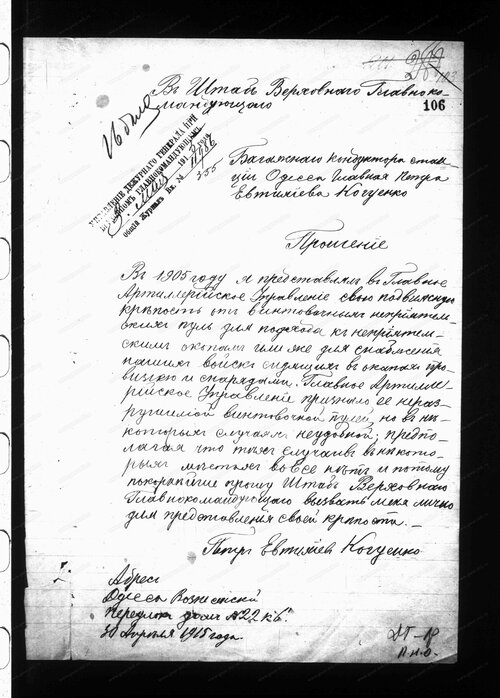 Въ Штабъ Верховнаго Главноко-
мандующаго
106
УПРАВЛЕНІЕ ДЕЖУРНАГО ГЕНЕРАЛА ПРИ
Общій Журналъ Вх. №
355
Багажнаго кондуктора стан-
ціи Одесса Главная Петра
Евтихіева Коцуенко
Прошеніе
Въ 1905 году я представлялъ въ Главное
Артиллерійское Управленіе свою подвижную
крѣпость отъ винтовочныхъ непріятель-
скихъ пуль для подхода къ непріятель-
скимъ окопамъ или же для снабженія
нашихъ войскъ сидящихъ въ окопахъ про-
визіею и снарядами. Главное Артилле-
рійское Управленіе признало ее нераз-
рушимой винтовочной пулей, но въ нѣ-
которыхъ случаяхъ неудобной; предпо-
лагая что такихъ случаевъ въ нѣкото-
рыхъ мѣстахъ вовсе нѣтъ и потому
покорнѣйше прошу Штабъ Верховнаго
Главнокомандующаго вызвать меня лично
для представленія своей крѣпости. —
Петръ Евтихіевъ Коцуенко
Адресъ
Одесса
Переулокъ домъ №22 кв 6.
30 Апрѣля 1915 года.